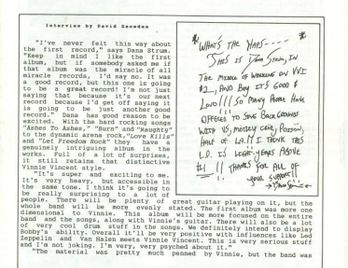 Interview by David Snowden
"I've never felt this way about
the first record," says Dana Strum.
"Keep in mind I like the first
album, but if somebody asked me if
that album was the miracle of all
miracle records, I'd say no. It was
a good record, but this one is going
to be a great record! I'm not just
saying that because it's our next
record because I'd get off saying it
is going to be just another good
record." Dana has good reason to be
excited. With the hard rocking songs
"Ashes To Ashes," "Burn" and "Naughty"
to the dynamic arena rock, "Love Kills"
and "Let Freedom Rock" they have a
genuinely intriguing album in the
works. Full of a lot of surprises,
it still retains that distinctive
Vinnie Vincent style.
"It's super and exciting to me.
It's very heavy, but accessible in
the same tone. I think it's going to
be real surprising to a lot of
people. There will be plenty of great guitar playing on it, but the
whole band will be more evenly stated. The first album was more one
dimensional to Vinnie. This album will be more focused on the entire
band and the songs, along with Vinnie's guitar. There will also be a lot
of very cool drum stuff in the songs. We definitely intend to display
Bobby's ability. Overall it'll be very positive with influences like Led
Zeppelin and Van Halen meets Vinnie Vincent. This is very serious stuff
and I'm not joking. I'm very, very psyched about it."
"The material was pretty much penned by Vinnie, but the band was
WHAT'S THE HAPS----
THIS IS DANA STRUM, IN
THE MIDDLE OF WORKING ON VVI
#2, AND BOY IT'S GOOD &
LOUD!!! SO MANY MORE HUGE
OFFERS TO SAVE BACKGROUNDS
WITH US, MOTLEY CRUE, POISON,
HALF OF L.A.!! I THINK THIS
L.P. IS LIGHT-YEARS ABOVE
#1 !! THANKS FOR ALL OF
YOUR SUPPORT!!
Dana Strum